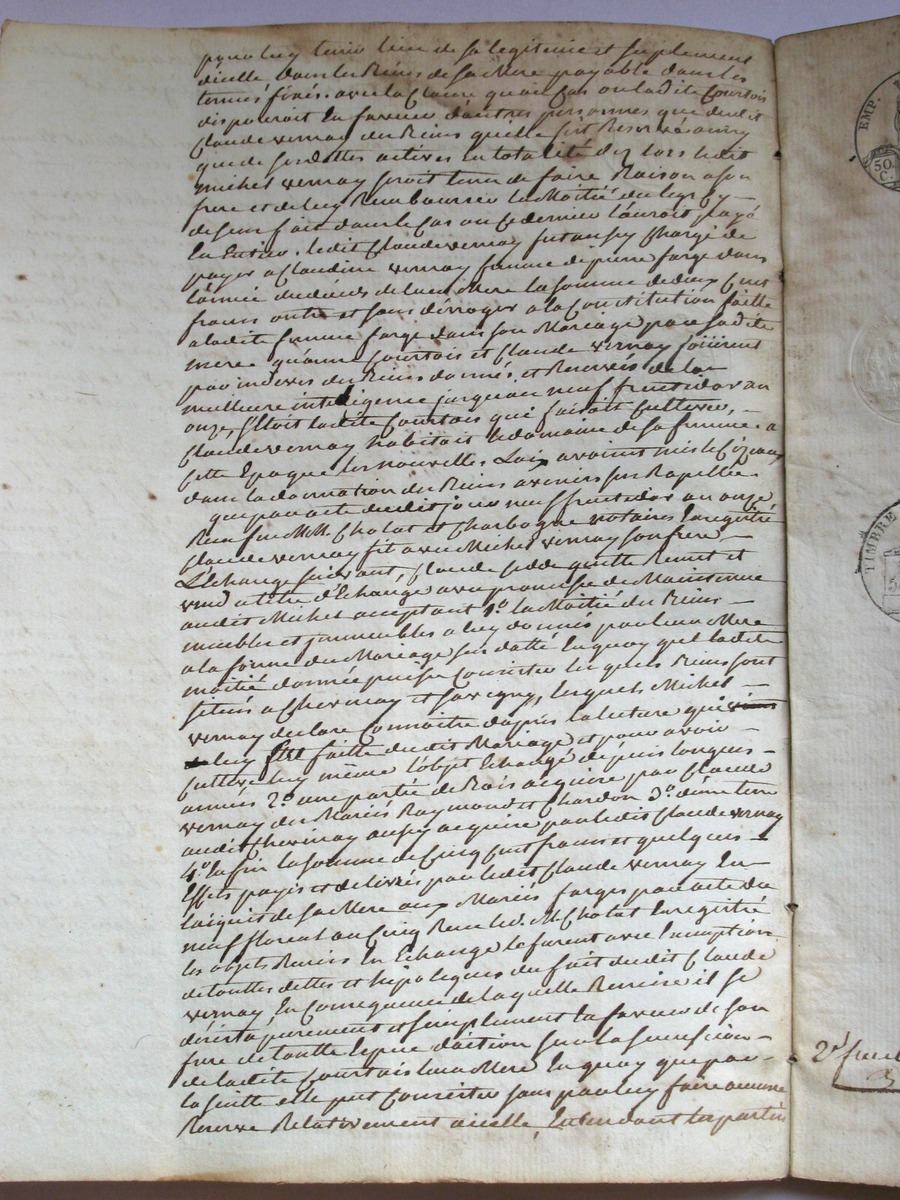 pour luy tenir lieu de sa legitime et suplement
d'icelle dans les Biens de sa Mere payable dans les
termes fixés. avec la Clause qu'au Cas ou ladite Courtois
disposeroit En faveur d'autres personnes que dudit
Claude vernay des Biens qu'elle s'est Reservés ainsy
que de ses dettes actives En totalité des lors ledit
michel vernay seroit tenu de faire Raison a son
frere et de luy Rembourser la Moitié du legs cy
de seur fait dans le Cas ou ce dernier l'auroit payé
En Entier. ledit Claude vernay fut aussy Chargé de
payer a Claudine vernay femme de pierre farge dans
l'année du décés de la ditte Mere la somme de deux Cent
francs outre et sans déroger a la Constitution faitte
a ladite femme farge dans son Mariage par sadite
mere. qu'anne Courtois et Claude vernay jouirent
par indivis des Biens donnés et Reservés de la
meilleure inteligence jusqu'au neuf fructidor an
onze, C'Etoit ladite Courtois qui faisoit Cultiver,
Claude vernay habitoit le domaine de sa femme. a
Cette Epoque les nouvelles Loix avoient mis
dans la donnation des Biens avenirs sus Rapellée
que par acte dudit jour neuf fructidor an onze
Reçu sur MM. Cholat et Charbogne notaires Enregistré
Claude vernay fit avec Michel vernay son frere
L'Echange suivant, Claude cede quitte Remet et
vend a titre d'Echange avec promesse de Maintenue
audit Michel acceptant 1o. la Moitié des Biens
meubles et jmmeubles a luy donnés par leur Mere
a la forme du Mariage sus datté En quoy que ladite
moitié donnée puisse Consister lesquels Biens sont
situés a Chevinay et savigny, lesquels Michel
vernay declare Connoitre d'après la lecture qui
luy Etté faitte dudit Mariage et pour avoir
Cultivé luy même l'objet Echangé depuis longues
années 2o. une partie de Bois acquise par Claude
vernay des Mariés Raymond et Chardon 3o. de
audit Chevinay aussy acquise par ledit Claude vernay
4o. En fin la somme de Cinq Cent francs et quelques
Effets payés et delivrés par ledit Claude vernay En
l'acquit de sa Mere aux Mariés farges par acte du
neuf floreal an Cinq Reçu led. M. Cholat Enregistré
les objets Remis En Echange le furent avec Exemption
de touttes dettes et hipoteques du fait dudit Claude
vernay En Consequence de laquelle Remise il se
désista purement et simplement En faveur de son
frere de toutte Espece d'action sur la succession
de ladite Courtois leur Mere En quoy que par
la suitte elle put Consister sans par luy faire aucune
Reserve Relativement a icelle, Entendant les parties
EMP.
50
C.
TIMBRE